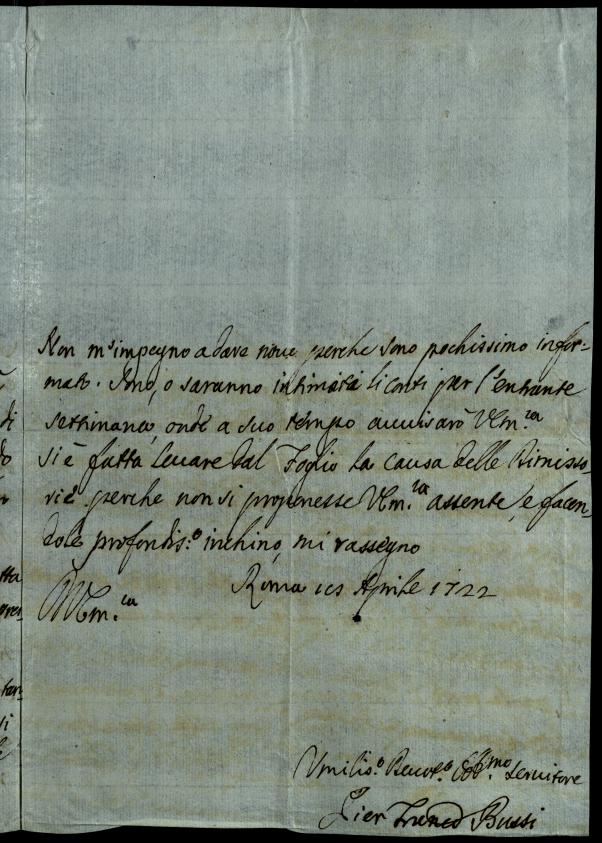 Non m'impegno a dare nove perche sono pochissimo infor-
mato. Sono, o saranno intimata li conti per l'entrante
settimana, onde a suo tempo auuisarò VS Ill.ma
si è fatta leuare dal foglio la causa delle Rimisso-
rie perche non si proponesse VS Ill.ma assente, e facen-
dole profondis.o inchino, mi rassegno
Roma 1cs Aprile 1722
Umilis.o Deuot.o Obb.mo seruitore
Pier Franco Bussi